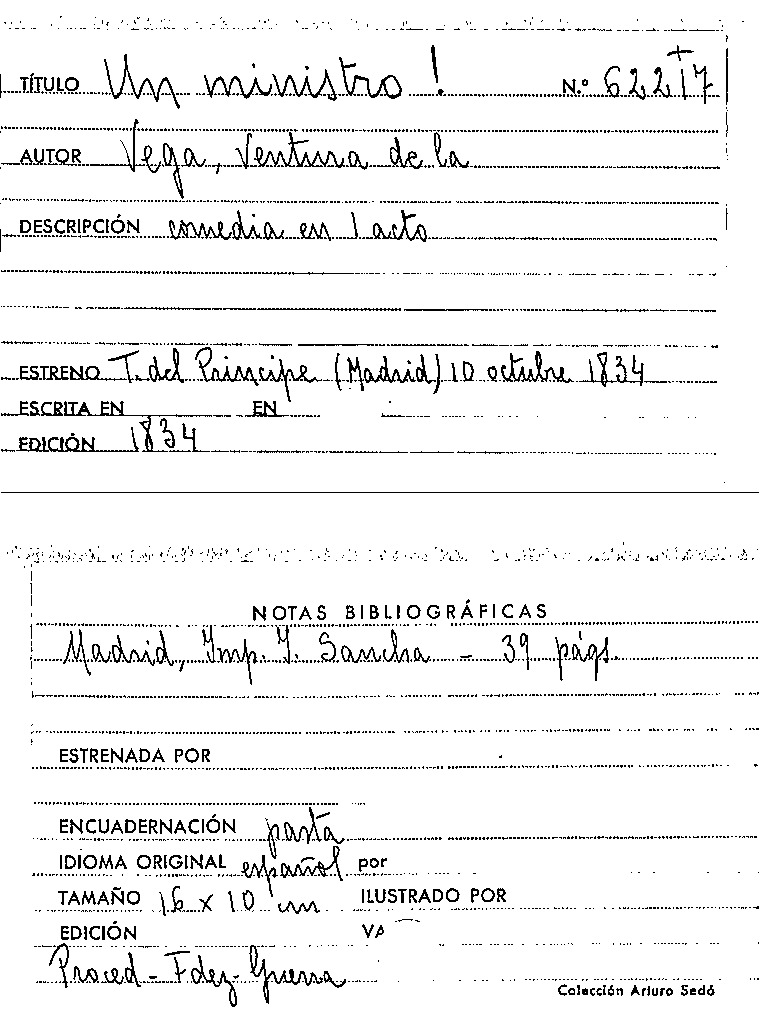 TÍTULO Un ministro! N.º 62217
AUTOR Vega, Ventura de la
DESCRIPCIÓN comedia en 1 acto
ESTRENO T. del Principe (Madrid) 10 octubre 1834
ESCRITA EN EN
EDICIÓN 1834
NOTAS BIBLIOGRÁFICAS
Madrid, Imp. I. Sancha - 39 págs.
ESTRENADA POR
ENCUADERNACIÓN pasta
IDIOMA ORIGINAL español por
TAMAÑO 16 x 10 cm ILUSTRADO POR
EDICIÓN VA
Proced - Fdez - Guerra
Colección Arturo Sedó